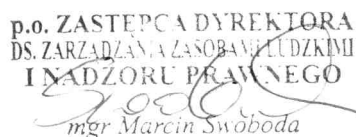 p.o. ZASTĘPCA DYREKTORA
DS. ZARZĄDZANIA ZASOBAMI LUDZKIMI
I NADZORU PRAWNEGO
mgr Marcin Swoboda